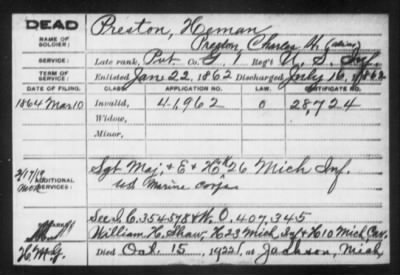 DEAD
NAME OF SOLDIER: Preston, Heman
Preston, Charles H. (alias)
SERVICE: Late rank, Pvt. Co. G, 1 Reg't U. S. Inf.
TERM OF SERVICE: Enlisted Jan 22, 1862 Discharged July 16, 1862
DATE OF FILING. CLASS. APPLICATION NO. LAW CERTIFICATE NO.
1864 Mar 10 Invalid, 41,962 O 28,724
Widow,
Minor,
ADDITIONAL SERVICES: Sgt Maj, & E & H 26 Mich Inf.
U.S. Marine Corps
See I. C. 354578 & W. O. 407,345
William H. Shaw, H 23 Mich Inf & H 10 Mich Cav.
Died Oct. 15, 1922, at Jackson, Mich